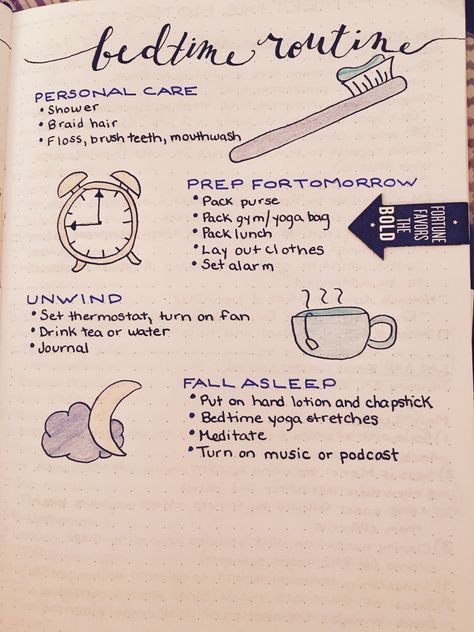 bedtime routine
PERSONAL CARE
• Shower
• Braid hair
• Floss, brush teeth, mouthwash
PREP FOR TOMORROW
• Pack purse
• Pack gym/yoga bag
• Pack lunch
• Lay out clothes
• Set alarm
FORTUNE
FAVORS
THE
BOLD
UNWIND
• Set thermostat, turn on fan
• Drink tea or water
• Journal
FALL ASLEEP
• Put on hand lotion and chapstick
• Bedtime yoga stretches
• Meditate
• Turn on music or podcast